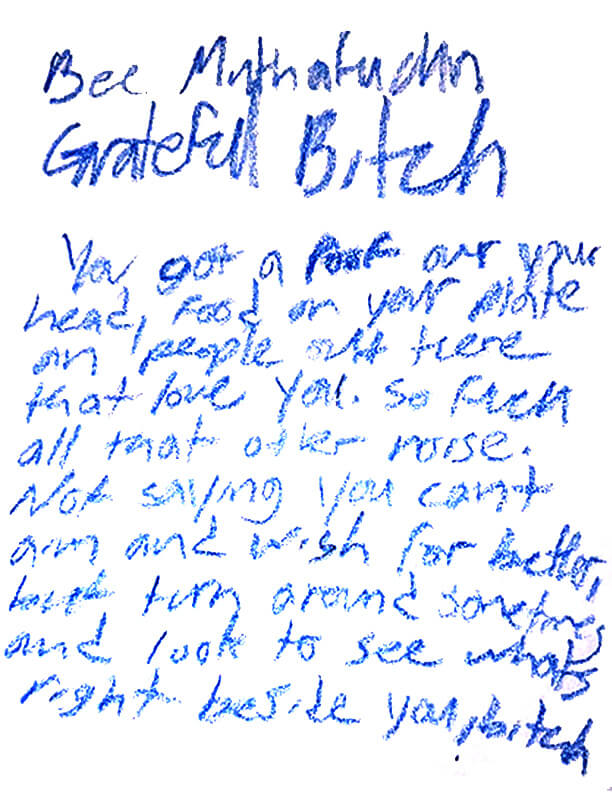 Bee Muthafuckin
Gratefull Bitch
You got a roof our your
head, food on your plate
an people out there
that love you. So Fuck
all that other noise.
Not saying you can't
aim and wish for better,
but turn around sometimes
and look to see whats
right beside you, bitch